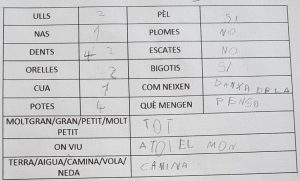 ULLS 2 PÈL SI
NAS 1 PLOMES NO
DENTS 4 2 ESCATES NO
ORELLES 2 BIGOTIS SI
CUA 1 COM NEIXEN PANXA DE LA
POTES 4 QUÈ MENGEN PENSO
MOLTGRAN/GRAN/PETIT/MOLT PETIT TOT
ON VIU A TOT EL MON
TERRA/AIGUA/CAMINA/VOLA/NEDA CAMINA